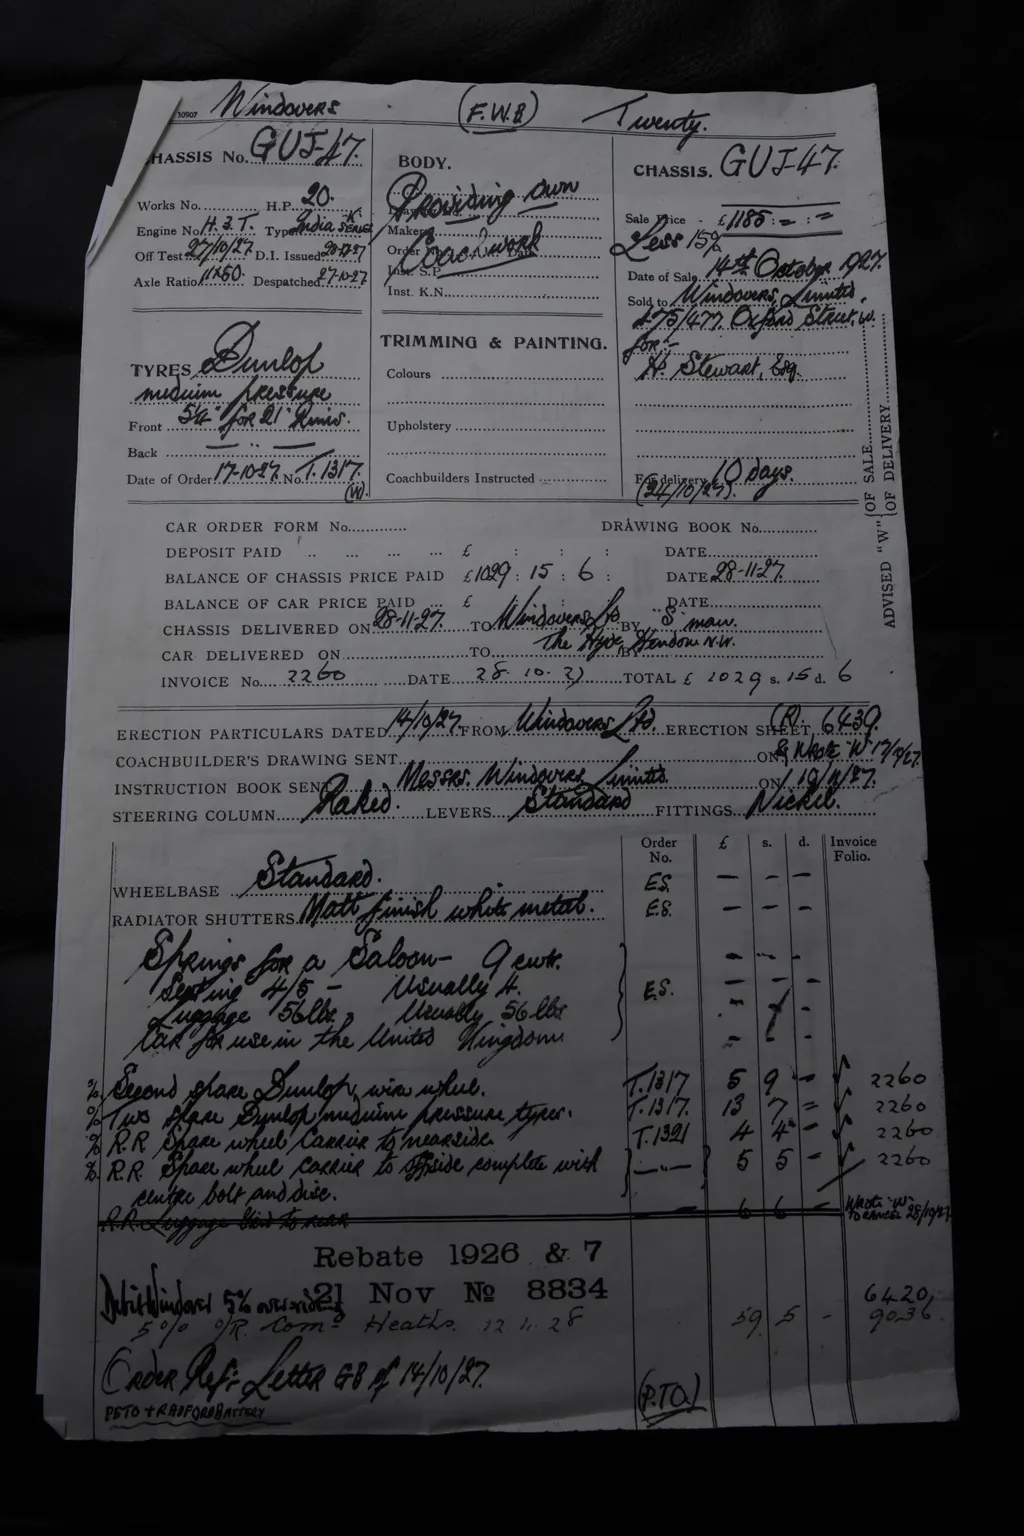 30907 Windovers (F.W.B) Twenty.
CHASSIS No. GUJ-47.
Works No. H.P. 20.
Engine No. H.3.T. Type India K SERIES
Off Test 27/10/27 D.I. Issued
Axle Ratio 11x50. Despatched 27-10-27
BODY.
Providing own
Coachwork
Maker
Inst. S.P.
Inst. K.N.
CHASSIS. GUJ-47.
Sale Price £1185 : = : =
Less 15%
Date of Sale 14th October 1927.
Sold to Windovers, Limited,
475/477, Oxford Street, W.
for:-
H. Stewart, Esq.
For delivery 10 days.
(24/10/27).
ADVISED "W" { OF SALE
OF DELIVERY
TYRES Dunlop
medium pressure
Front 5¼" for 21" Rims.
Back — " —
Date of Order 17-10-27. No. T.1317.
(W).
TRIMMING & PAINTING.
Colours
Upholstery
Coachbuilders Instructed
CAR ORDER FORM No. DRAWING BOOK No.
DEPOSIT PAID £ : : : DATE
BALANCE OF CHASSIS PRICE PAID £1029 : 15 : 6 : DATE 28-11-27.
BALANCE OF CAR PRICE PAID £ DATE
CHASSIS DELIVERED ON 28-11-27. TO Windovers Ltd BY S'man.
The Hyde, Hendon N.W.
CAR DELIVERED ON TO BY
INVOICE No. 2260 DATE 28.10.27 TOTAL £ 1029 s. 15 d. 6
ERECTION PARTICULARS DATED 14/10/27. FROM Windovers Ltd. ERECTION SHEET (R). 6439.
COACHBUILDER'S DRAWING SENT ON & Wrote "W" 17/10/27.
INSTRUCTION BOOK SENT Messrs. Windovers Limited. ON
STEERING COLUMN Raked. LEVERS Standard FITTINGS Nickel.
Order No. £ s. d. Invoice Folio.
WHEELBASE Standard. E.S. — — —
RADIATOR SHUTTERS Matt finish white metal. E.S. — — —
Springs for a Saloon — 9 cwt. - - -
Seating 4/5 — Usually 4. E.S. - - -
Luggage 56lbs. Usually 56 lbs - -
Car for use in the United Kingdom - -
% Second spare Dunlop wire wheel. T.1317 5 9 - 2260
% Two spare Dunlop medium pressure tyres. T.1317. 13 7 = 2260
% R.R. Spare wheel carrier to nearside T.1321 4 4 - 2260
% R.R. Spare wheel carrier to offside complete with —"— 5 5 - 2260
centre bolt and disc.
R.R. Luggage Grid to rear — 6 6 - Wrote "W"
28/10/27
Rebate 1926 & 7
21 Nov No 8834
Debit Windover 5% overriding 6420
5% O/R. Comn Heaths. 12.4.28 59 5 - 9036
Order Ref:- Letter GB of 14/10/27.
PETO & RADFORD BATTERY
(P.T.O.)